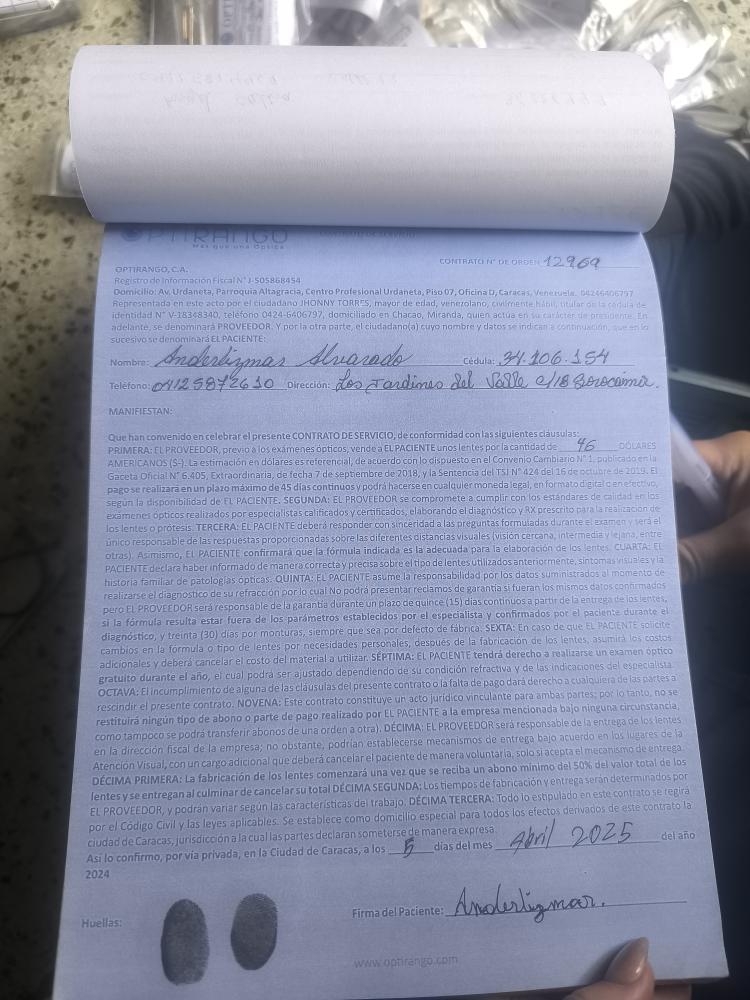 OPTIRANGO
Más que una Óptica
CONTRATO DE SERVICIO
CONTRATO N° DE ORDEN 12969
OPTIRANGO, C.A.
Registro de Información Fiscal N° J-505868454
Domicilio: Av. Urdaneta, Parroquia Altagracia, Centro Profesional Urdaneta, Piso 07, Oficina D, Caracas, Venezuela. 04246406797
Representada en este acto por el ciudadano JHONNY TORRES, mayor de edad, venezolano, civilmente hábil, titular de la cédula de
identidad N° V-18348340, teléfono 0424-6406797, domiciliado en Chacao, Miranda, quien actúa en su carácter de presidente. En
adelante, se denominará PROVEEDOR. Y por la otra parte, el ciudadano(a) cuyo nombre y datos se indican a continuación, que en lo
sucesivo se denominará EL PACIENTE:
Nombre: Anderlizmar Alvarado Cédula: 34.106.154
Teléfono: 04125872610 Dirección: Los Jardines del Valle c/18
MANIFIESTAN:
Que han convenido en celebrar el presente CONTRATO DE SERVICIO, de conformidad con las siguientes cláusulas:
PRIMERA: EL PROVEEDOR, previo a los exámenes ópticos, vende a EL PACIENTE unos lentes por la cantidad de 46 DÓLARES
AMERICANOS ($-). La estimación en dólares es referencial, de acuerdo con lo dispuesto en el Convenio Cambiario N° 1, publicado en la
Gaceta Oficial N° 6.405, Extraordinaria, de fecha 7 de septiembre de 2018, y la Sentencia del TSJ N° 424 del 16 de octubre de 2019. El
pago se realizará en un plazo máximo de 45 días continuos y podrá hacerse en cualquier moneda legal, en formato digital o en efectivo,
según la disponibilidad de EL PACIENTE. SEGUNDA: EL PROVEEDOR se compromete a cumplir con los estándares de calidad en los
exámenes ópticos realizados por especialistas calificados y certificados, elaborando el diagnóstico y RX prescrito para la realización de
los lentes o prótesis. TERCERA: EL PACIENTE deberá responder con sinceridad a las preguntas formuladas durante el examen y será el
único responsable de las respuestas proporcionadas sobre las diferentes distancias visuales (visión cercana, intermedia y lejana, entre
otras). Asimismo, EL PACIENTE confirmará que la fórmula indicada es la adecuada para la elaboración de los lentes. CUARTA: EL
PACIENTE declara haber informado de manera correcta y precisa sobre el tipo de lentes utilizados anteriormente, síntomas visuales y la
historia familiar de patologías ópticas. QUINTA: EL PACIENTE asume la responsabilidad por los datos suministrados al momento de
realizarse el diagnóstico de su refracción por lo cual No podrá presentar reclamos de garantía si fueran los mismos datos confirmados
pero EL PROVEEDOR será responsable de la garantía durante un plazo de quince (15) días continuos a partir de la entrega de los lentes,
si la fórmula resulta estar fuera de los parámetros establecidos por el especialista y confirmados por el paciente durante el
diagnóstico, y treinta (30) días por monturas, siempre que sea por defecto de fábrica. SEXTA: En caso de que EL PACIENTE solicite
cambios en la fórmula o tipo de lentes por necesidades personales, después de la fabricación de los lentes, asumirá los costos
adicionales y deberá cancelar el costo del material a utilizar. SÉPTIMA: EL PACIENTE tendrá derecho a realizarse un examen óptico
gratuito durante el año, el cual podrá ser ajustado dependiendo de su condición refractiva y de las indicaciones del especialista.
OCTAVA: El incumplimiento de alguna de las cláusulas del presente contrato o la falta de pago dará derecho a cualquiera de las partes a
rescindir el presente contrato. NOVENA: Este contrato constituye un acto jurídico vinculante para ambas partes; por lo tanto, no se
restituirá ningún tipo de abono o parte de pago realizado por EL PACIENTE a la empresa mencionada bajo ninguna circunstancia,
como tampoco se podrá transferir abonos de una orden a otra). DÉCIMA: EL PROVEEDOR será responsable de la entrega de los lentes
en la dirección fiscal de la empresa; no obstante, podrían establecerse mecanismos de entrega bajo acuerdo en los lugares de la
Atención Visual, con un cargo adicional que deberá cancelar el paciente de manera voluntaria, solo si acepta el mecanismo de entrega.
DÉCIMA PRIMERA: La fabricación de los lentes comenzará una vez que se reciba un abono mínimo del 50% del valor total de los
lentes y se entregan al culminar de cancelar su total DÉCIMA SEGUNDA: Los tiempos de fabricación y entrega serán determinados por
EL PROVEEDOR, y podrán variar según las características del trabajo. DÉCIMA TERCERA: Todo lo estipulado en este contrato se regirá
por el Código Civil y las leyes aplicables. Se establece como domicilio especial para todos los efectos derivados de este contrato la
ciudad de Caracas, jurisdicción a la cual las partes declaran someterse de manera expresa.
Así lo confirmo, por vía privada, en la Ciudad de Caracas, a los 5 días del mes Abril 2025 del año
2024
Huellas:
Firma del Paciente: Anderlizmar.
www.optirango.com